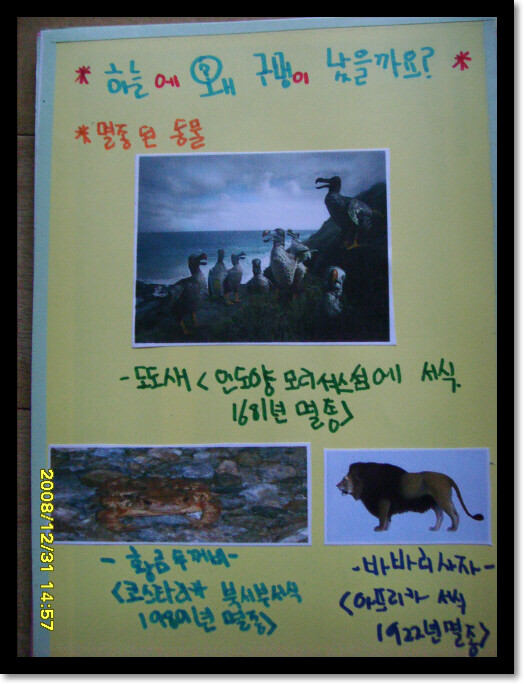 * 하늘에 왜 구멍이 났을까요? *
* 멸종 된 동물
- 도도새 < 인도양 모리셔스섬에 서식
1681년 멸종>
- 황금두꺼비 -
<코스타리카 북서부서식
1989년 멸종>
- 바바리사자 -
<아프리카 서식
1922년 멸종>
2008/12/31 14:57